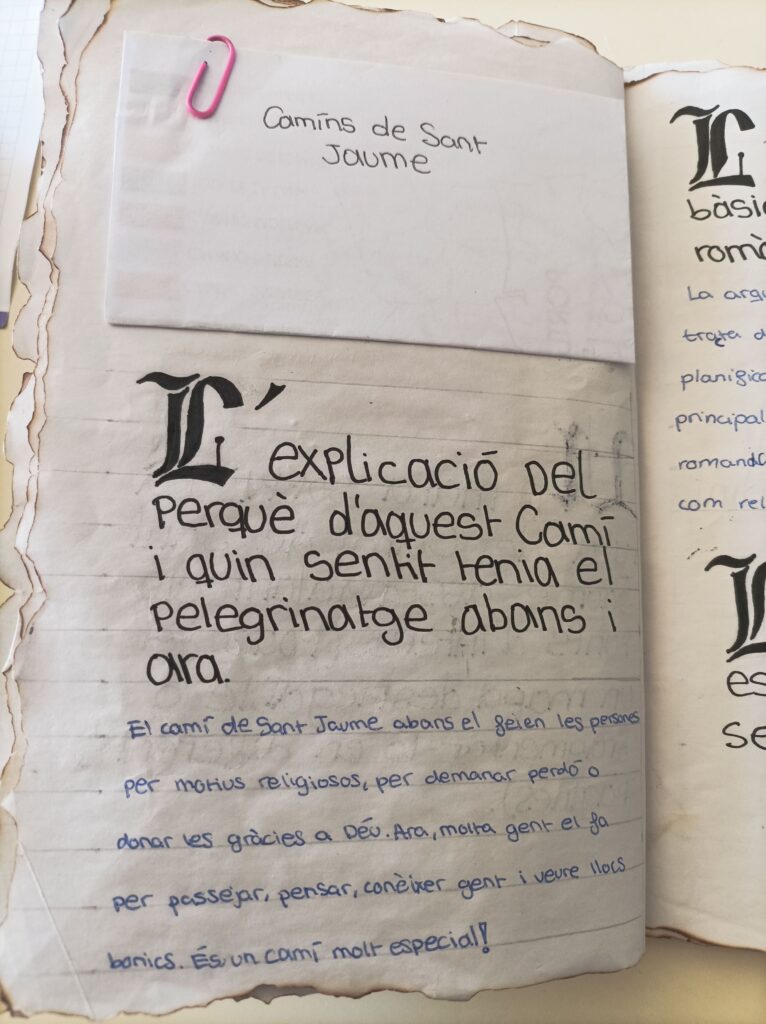 Camins de Sant
Jaume
L'explicació del
perquè d'aquest Camí
i quin sentit tenia el
pelegrinatge abans i
ara.
El camí de Sant Jaume abans el feien les persones
per motius religiosos, per demanar perdó o
donar les gràcies a Déu. Ara, molta gent el fa
per passejar, pensar, conèixer gent i veure llocs
bonics. És un camí molt especial!
L
romà
La arqu
planifica
principal
com rel
L
es
se